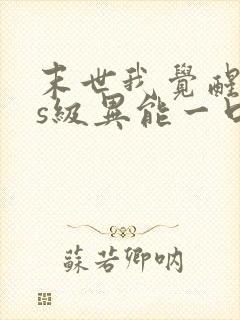 末世我觉醒
s級異能一口
蘇若卿吶